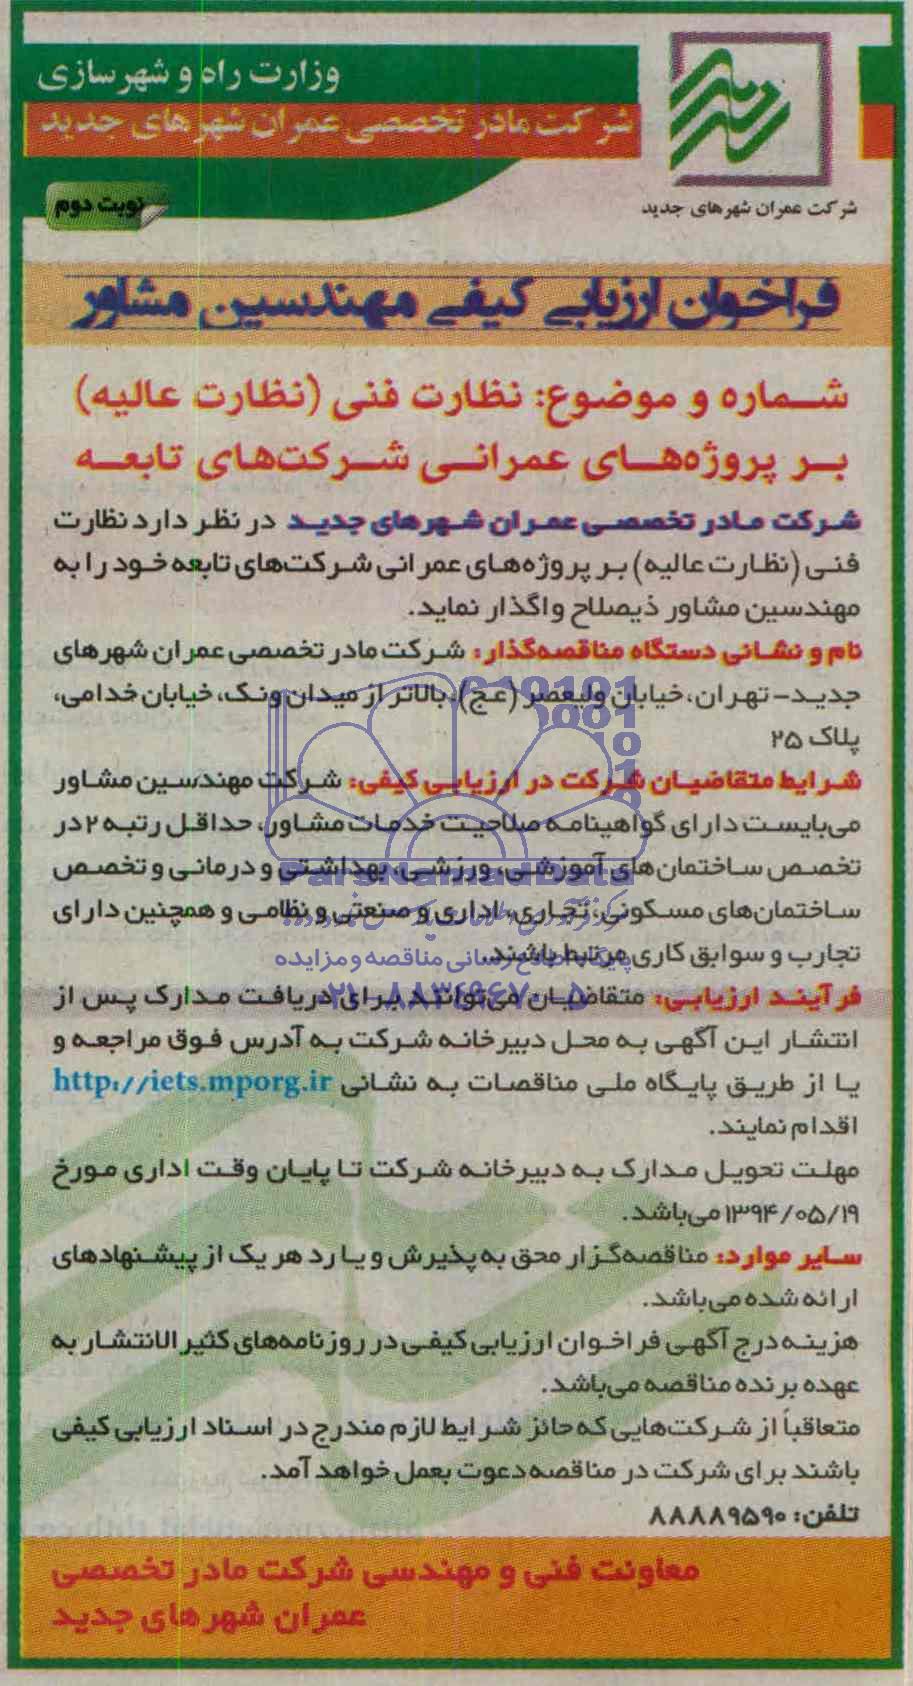 وزارت راه و شهرسازی
شرکت مادر تخصصی عمران شهرهای جدید
شرکت عمران شهرهای جدید
نوبت دوم
فراخوان ارزیابی کیفی مهندسین مشاور
شماره و موضوع: نظارت فنی (نظارت عالیه)
بر پروژه‌های عمرانی شرکت‌های تابعه
شرکت مادر تخصصی عمران شهرهای جدید در نظر دارد نظارت
فنی (نظارت عالیه) بر پروژه‌های عمرانی شرکت‌های تابعه خود را به
مهندسین مشاور ذیصلاح واگذار نماید.
نام و نشانی دستگاه مناقصه‌گذار: شرکت مادر تخصصی عمران شهرهای
جدید- تهران، خیابان ولیعصر (عج)، بالاتر از میدان ونک، خیابان خدامی،
پلاک ۲۵
شرایط متقاضیان شرکت در ارزیابی کیفی: شرکت مهندسین مشاور
می‌بایست دارای گواهینامه صلاحیت خدمات مشاور، حداقل رتبه ۲ در
تخصص ساختمان‌های آموزشی، ورزشی، بهداشتی و درمانی و تخصص
ساختمان‌های مسکونی، تجاری، اداری و صنعتی و نظامی و همچنین دارای
تجارب و سوابق کاری مرتبط باشند.
فرآیند ارزیابی: متقاضیان می‌توانند برای دریافت مدارک پس از
انتشار این آگهی به محل دبیرخانه شرکت به آدرس فوق مراجعه و
یا از طریق پایگاه ملی مناقصات به نشانی http://iets.mporg.ir
اقدام نمایند.
مهلت تحویل مدارک به دبیرخانه شرکت تا پایان وقت اداری مورخ
۱۳۹۴/۰۵/۱۹ می‌باشد.
سایر موارد: مناقصه‌گزار محق به پذیرش و یا رد هر یک از پیشنهادهای
ارائه شده می‌باشد.
هزینه درج آگهی فراخوان ارزیابی کیفی در روزنامه‌های کثیرالانتشار به
عهده برنده مناقصه می‌باشد.
متعاقباً از شرکت‌هایی که حائز شرایط لازم مندرج در اسناد ارزیابی کیفی
باشند برای شرکت در مناقصه دعوت بعمل خواهد آمد.
تلفن: ۸۸۸۸۹۵۹۰
معاونت فنی و مهندسی شرکت مادر تخصصی
عمران شهرهای جدید
ParsNamadData
پایگاه اطلاع رسانی مناقصه و مزایده
۰۲۱-۸۸۳۴۹۶۷۰-۵